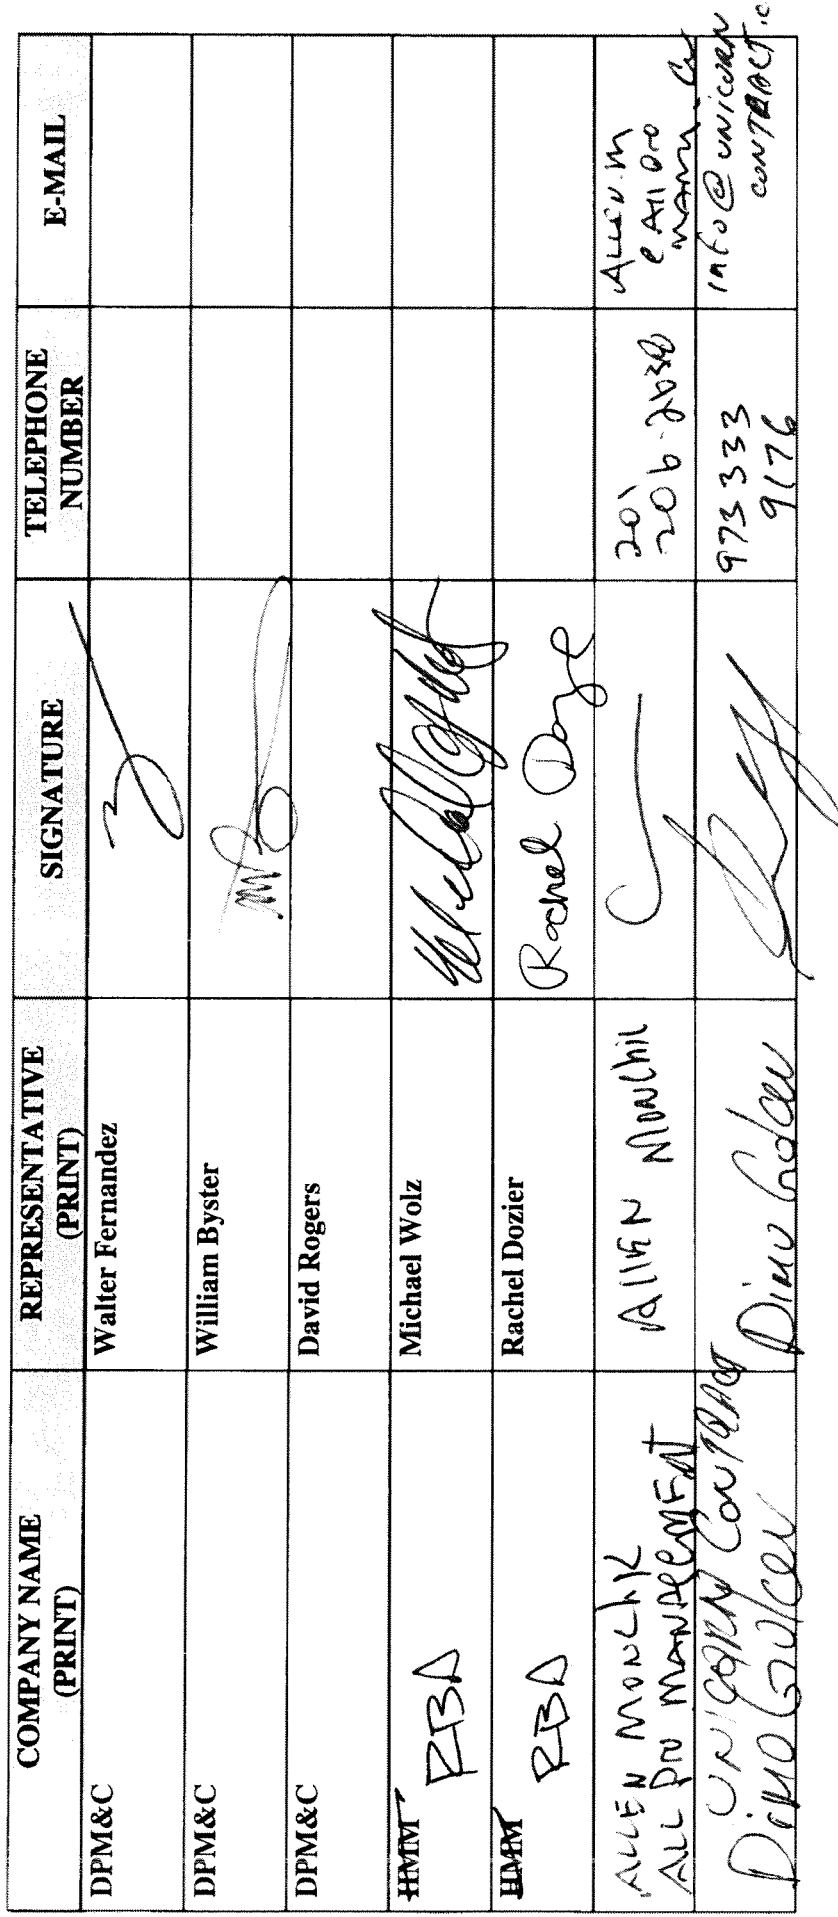 COMPANY NAME
(PRINT)
REPRESENTATIVE
(PRINT)
SIGNATURE
TELEPHONE
NUMBER
E-MAIL
DPM&C
Walter Fernandez
DPM&C
William Byster
DPM&C
David Rogers
HMM RBA
Michael Wolz
HMM RBA
Rachel Dozier
Rachel
ALLEN MONCHIK
ALL PRO MANAGEMENT
ALLEN MONCHIK
201
206-2630
ALLEN.M
UNICORN CONTRACT
DIMO
Dimo
973 333
9176
INFO@UNICORN
CONTRACT